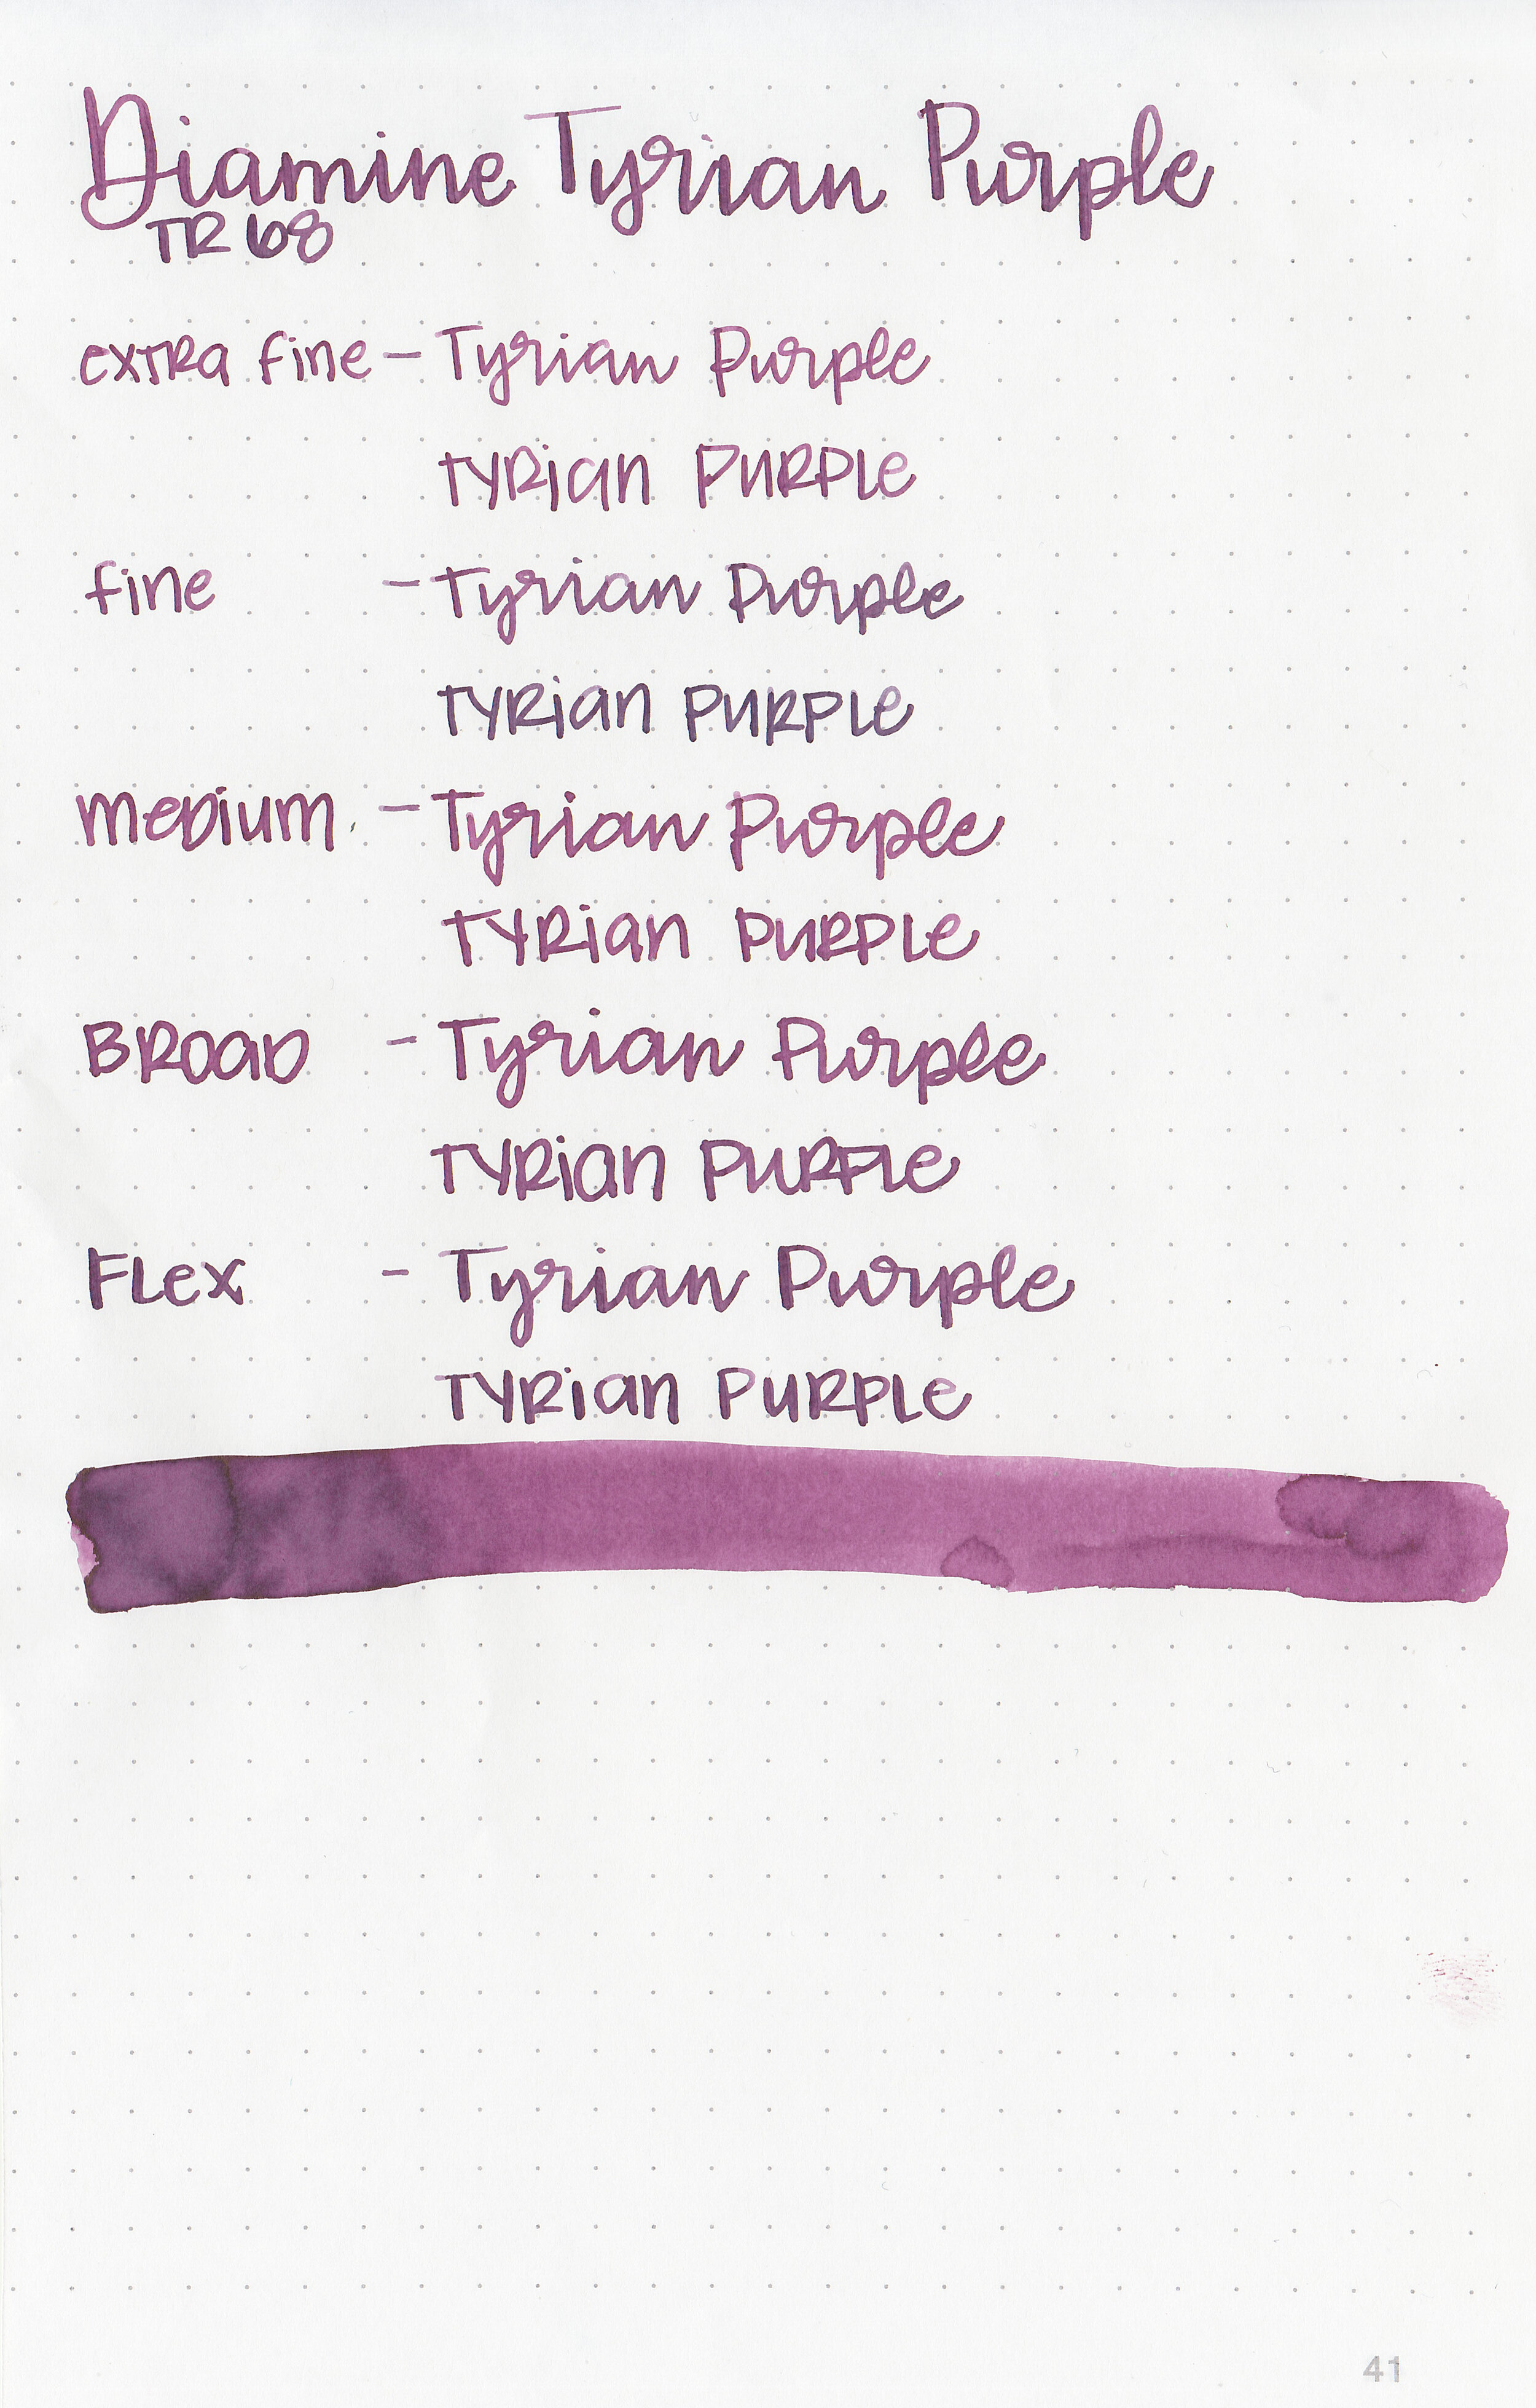 Diamine Tyrian Purple
TR 68
extra fine - Tyrian Purple
TYRian PURPLe
fine - Tyrian Purple
TYRian PURPLe
meDium - Tyrian Purple
TYRian PURPLe
BROaD - Tyrian Purple
TYRian PURPLe
FLex - Tyrian Purple
TYRian PURPLe
41